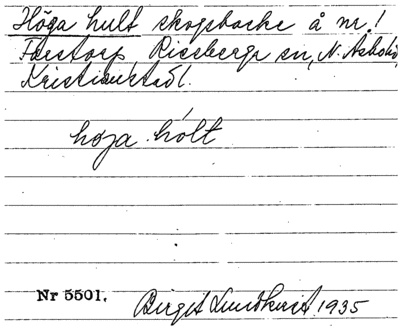 Höga hult skogsbacke å nr. 1
Färstorp Riseberga sn, N. Åsbo hd,
Kristianstad l.
hoja hólt
Nr 5501.
Birgit Lundkvist 1935